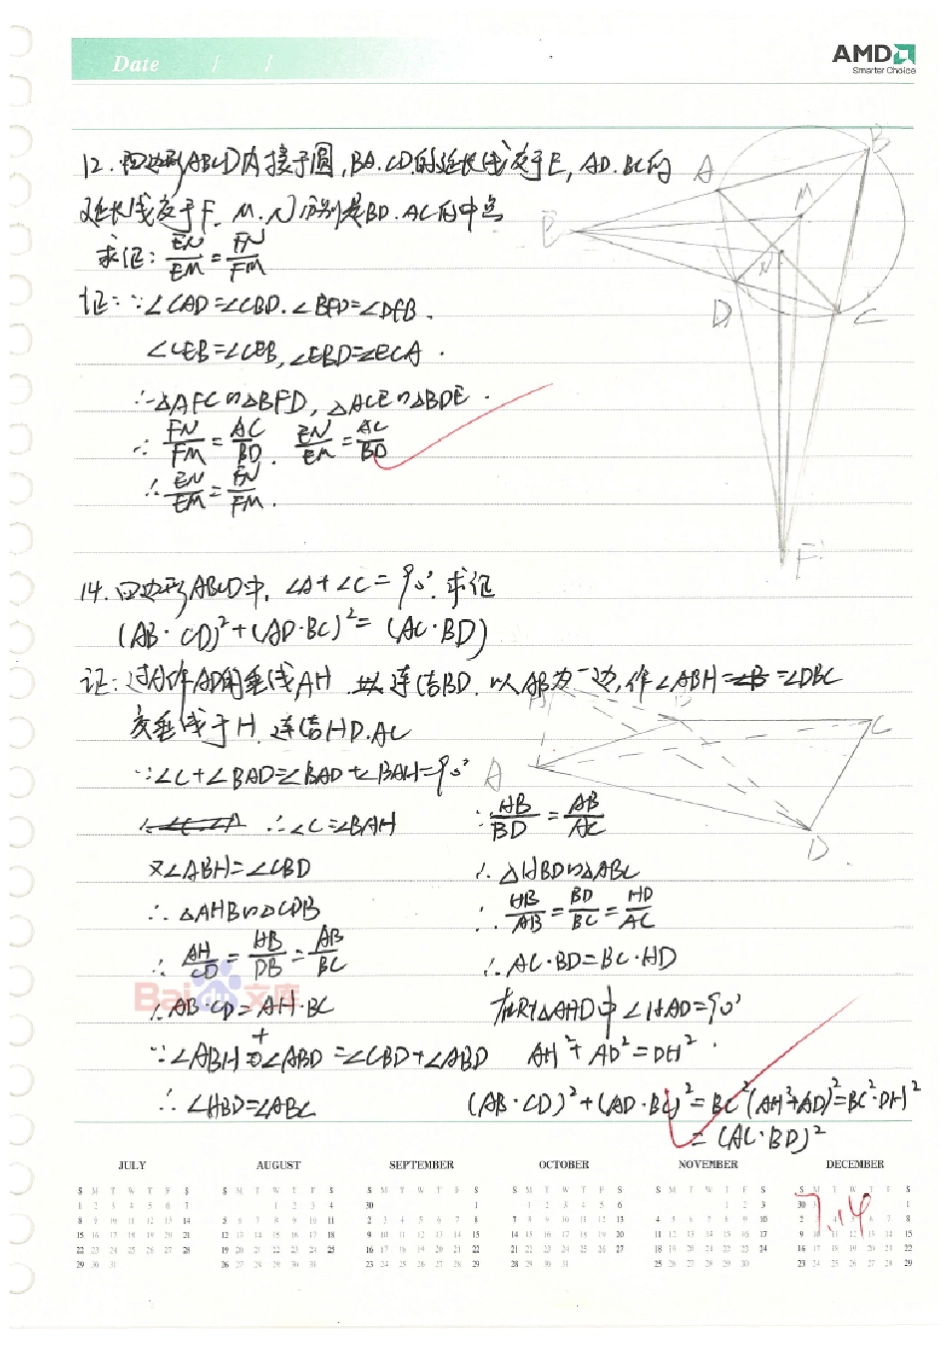 Date / /
AMD
Smarter Choice
12. 四边形ABCD内接于圆, BA. CD的延长线交于E, AD. BC的
延长线交于F. M. N分别是BD. AC的中点
求证: EN/EM = FN/FM
证: ∵∠CAD=∠CBD. ∠BFD=∠DFB.
∠CEB=∠CEB, ∠EBD=∠ECA.
∴△AFC∽△BFD, △ACE∽△BDE.
∴ FN/FM = AC/BD. EN/EM = AC/BD
∴ EN/EM = FN/FM.
A
B
M
E
N
D
C
F
14. 四边形ABCD中, ∠A+∠C=90°. 求证
(AB·CD)²+(AD·BC)²=(AC·BD)
证: 过A作AD的垂线AH 连结BD. 以AB为一边, 作∠ABH=∠DBC
交垂线于H. 连结HD. AC
∵∠C+∠BAD=∠BAD+∠BAH=90°
∴∠C=∠BAH
又∠ABH=∠CBD
∴△AHB∽△CDB
∴ AH/CD = HB/DB = AB/BC
∴AB·CD=AH·BC
∵∠ABH+∠ABD=∠CBD+∠ABD
∴∠HBD=∠ABC
H
B
C
A
D
∵ HB/BD = AB/AC
∴△HBD∽△ABC
∴ HB/AB = BD/BC = HD/AC
∴AC·BD=BC·HD
在Rt△AHD中∠HAD=90°
AH²+AD²=DH².
(AB·CD)²+(AD·BC)²=BC²(AH²+AD)²=BC²·DH²
=(AC·BD)²
Bai 文库
JULY AUGUST SEPTEMBER OCTOBER NOVEMBER DECEMBER
7.14